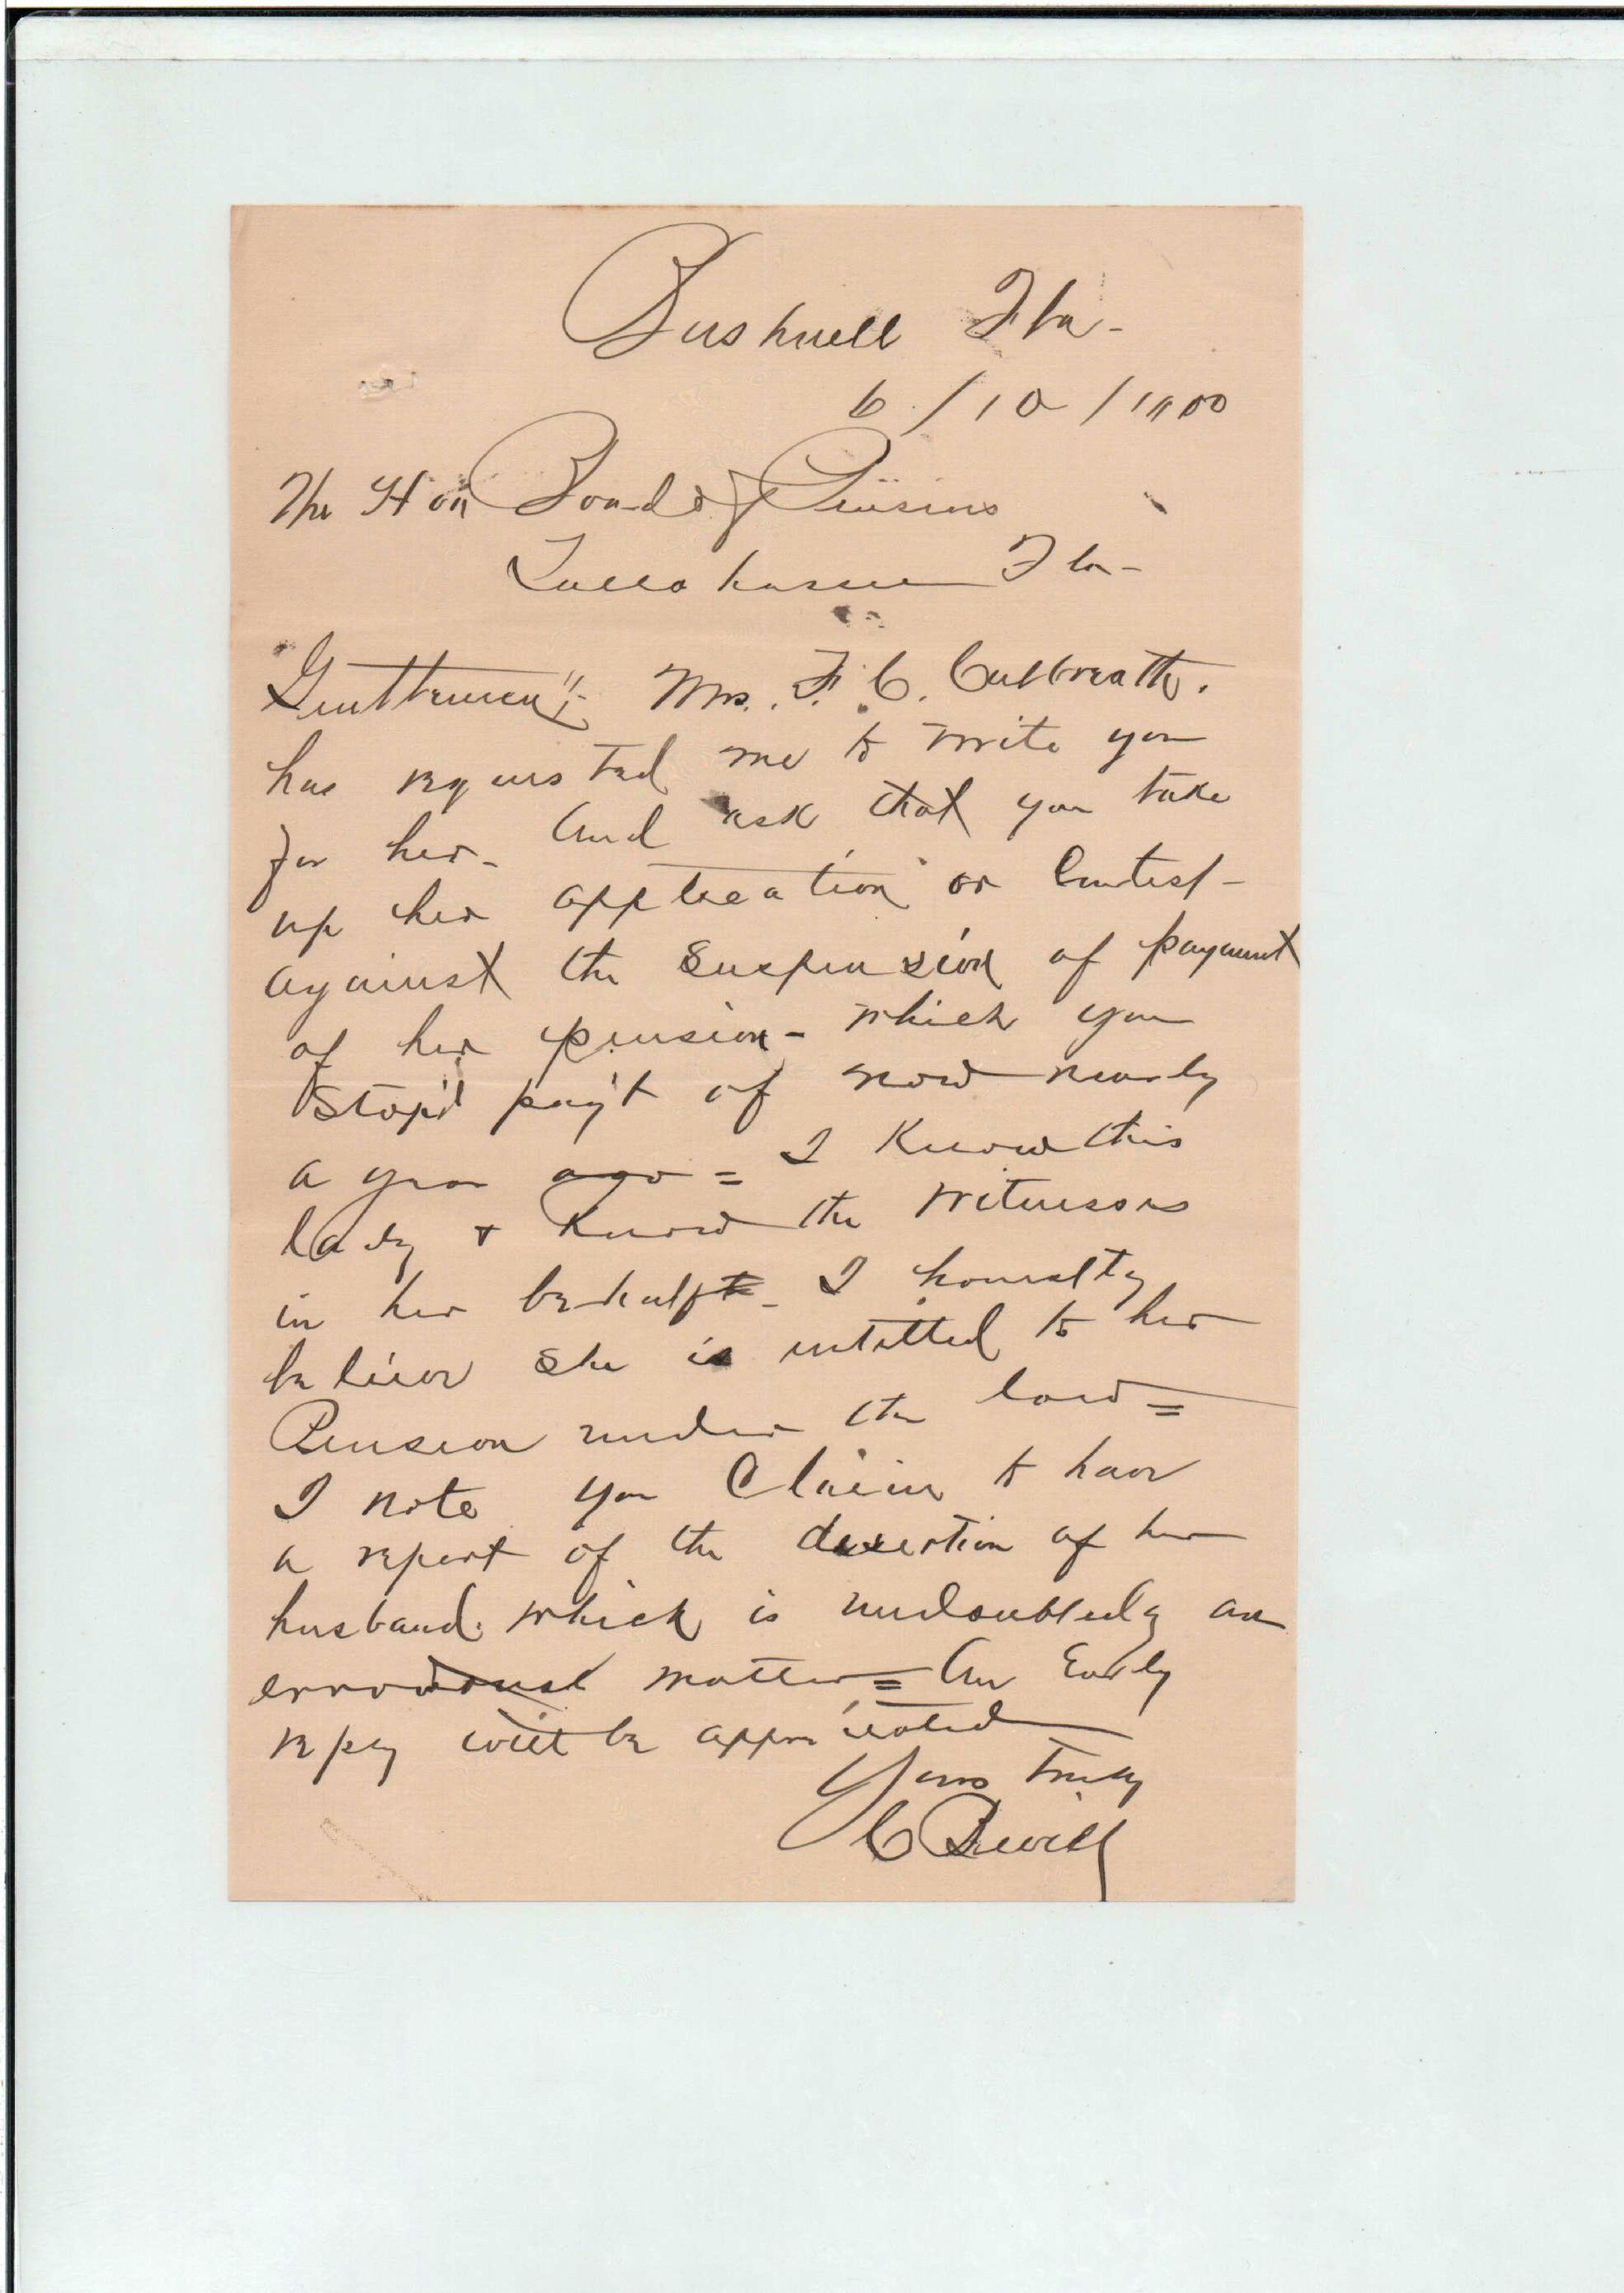 Bushnell Fla-
6/10/1900
The Hon Board of Pensions
Tallahassee Fla-
Gentlemen":- Mrs. F. C. Culbreath.
has requested me to write you
for her- And ask that you take
up her application or Contest-
against the Suspension of payment
of her pension- which you
stop'd pay't of now nearly
a year ago = I Know this
lady & Know the witnesses
in her behalf- I honestly
believe She is intitled to her
Pension under the law =
I note you Claim to have
a report of the desertion of her
husband. which is undoubtedly an
matter = An Early
reply will be appreciated
Yours Truly
C Bevill